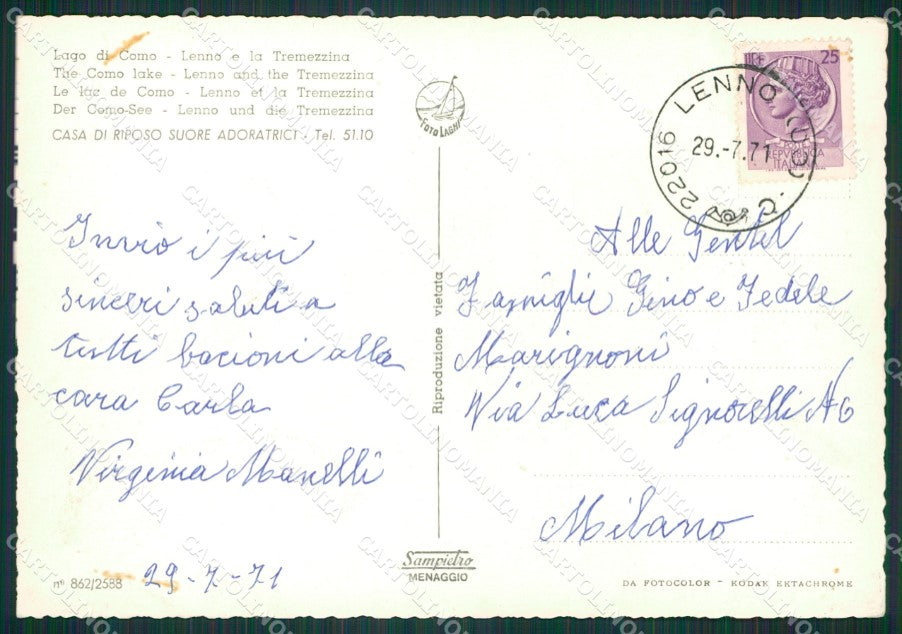 Lago di Como - Lenno e la Tremezzina
The Como lake - Lenno and the Tremezzina
Le lac de Como - Lenno et la Tremezzina
Der Como-See - Lenno und die Tremezzina
CASA DI RIPOSO SUORE ADORATRICI - Tel. 51.10
Invio i più
sinceri saluti a
tutti bacioni alla
cara Carla
Virginia Manelli
29-7-71
nº 862/2588
FOTO LAGHI
Riproduzione vietata
Sampietro
MENAGGIO
22016 LENNO (CO)
29.-7.71
LIRE 25
POSTE
REPVBBLICA
ITALIANA
Alle Gentil
Famiglie Gino e Fedele
Marignoni
Via Luca Signorelli N6
Milano
DA FOTOCOLOR - KODAK EKTACHROME
CARTOLINOMANIA